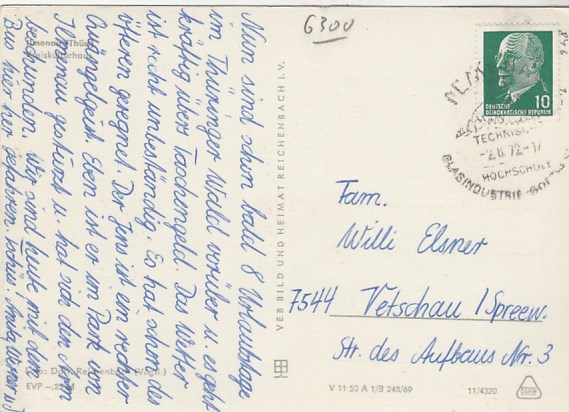 6300
Ilmenau/Thür.
Kreiskulturhaus
Nun sind schon bald 8 Urlaubstage
im Thüringer Wald vorüber u. es geht
kräftig übers Taschengeld. Das Wetter
ist recht unbeständig. Es hat schon des
öfteren geregnet. Der Jens ist ein rechter
Quängelgeist. Eben ist er im Park von
Ilmenau gestürzt u. hat sich den Arm
geschunden. Wir sind heute mit dem
Bus hier her gefahren.
Foto: Darr, Reichenbach (Vogtl.)
EVP -,25 M
VEB BILD UND HEIMAT REICHENBACH I. V.
DEUTSCHE
DEMOKRATISCHE REPUBLIK
10
TECHNISCHE
-2.8.72-17
HOCHSCHULE
GLASINDUSTRIE
Fam.
Willi Elsner
7544 Vetschau / Spreew.
Str. des Aufbaus Nr. 3
V 11 50 A 1/B 248/69
11/4320